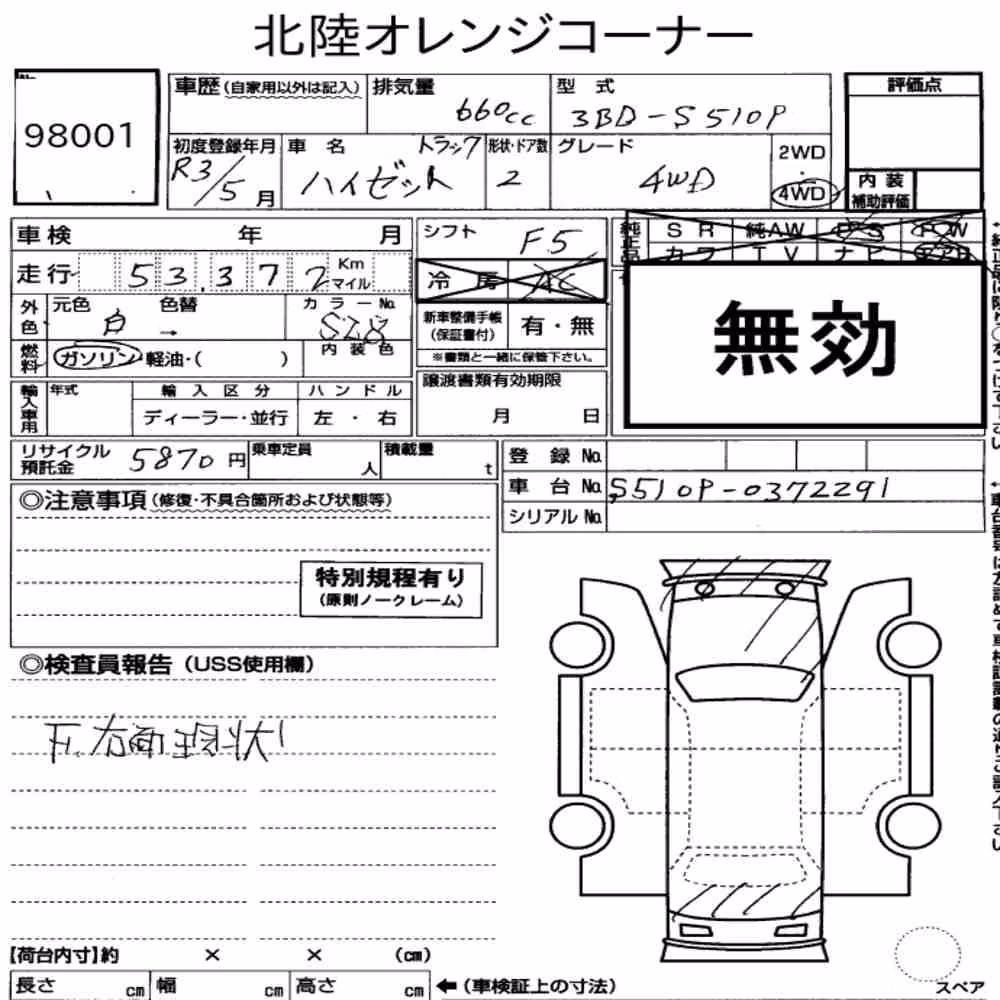 北陸オレンジコーナー
98001
車歴(自家用以外は記入) 排気量 660cc 型 式 3BD-S510P 評価点
初度登録年月 R3/5月 車 名 ハイゼット トラック 形状・ドア数 2 グレード 4WD 2WD 4WD
内 装
補助評価
車検 年 月 シフト F5 純正品 S R 純AW P S P W
走行 53.372 Km マイル 冷 房 AC カ ワ T V ナ ビ
外色 元色 白 色替 → カラーNo. S28 新車整備手帳 (保証書付) 有・無
無効
燃料 ガソリン・軽油・( ) 内装色 ※書類と一緒に保管下さい。
輸入車用 年式 輸 入 区 分 ハ ン ド ル 譲渡書類有効期限
ディーラー・並行 左 ・ 右 月 日
リサイクル預託金 5870円 乗車定員 人 積載量 t 登 録 No.
車 台 No. S510P-0372291
シリアル No.
◎注意事項(修復・不具合箇所および状態等)
特別規程有り
(原則ノークレーム)
◎検査員報告(USS使用欄)
下、右面現状
【荷台内寸】約 × × (cm)
長さ cm 幅 cm 高さ cm ←(車検証上の寸法)
スペア